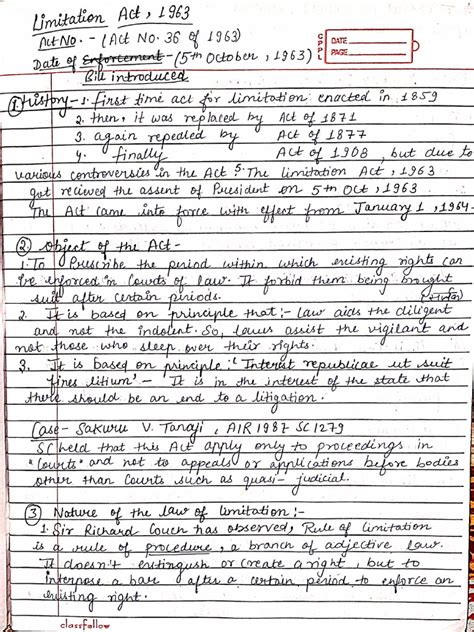 Limitation Act, 1963
Act No. - (Act No. 36 of 1963)
Date of Enforcement - (5th October, 1963)
Bill introduced
DATE
PAGE
① History - 1. First time act for limitation enacted in 1859
2. then, it was replaced by Act of 1871
3. again repealed by Act of 1877
4. finally Act of 1908, but due to
various controversies in the Act 5. The limitation Act, 1963
got recived the assent of President on 5th Oct, 1963.
The Act came into force with effect from January 1, 1964.
② Object of the Act -
1. To Prescribe the period within which existing rights can
be enforced in Courts of law. It forbid them being brought
suit after certain periods.
2. It is based on principle that:- law aids the diligent
and not the indolent. So, laws assist the vigilant and
not those who sleep over their rights.
3. It is based on principle: 'Interest republicae ut suit
fines litium' - It is in the interest of the state that
there should be an end to a litigation.
Case - Sakuru V. Tanaji, AIR 1987 SC 1279
SC held that this Act apply only to proceedings in
"Courts" and not to appeals or applications before bodies
other than Courts such as quasi-judicial.
③ Nature of the law of limitation:-
1. Sir Richard Couch has observed, Rule of limitation
is a rule of procedure, a branch of adjective law.
It doesn't extinguish or create a right, but to
interpose a bar after a certain period to enforce an
existing right.
classfellow